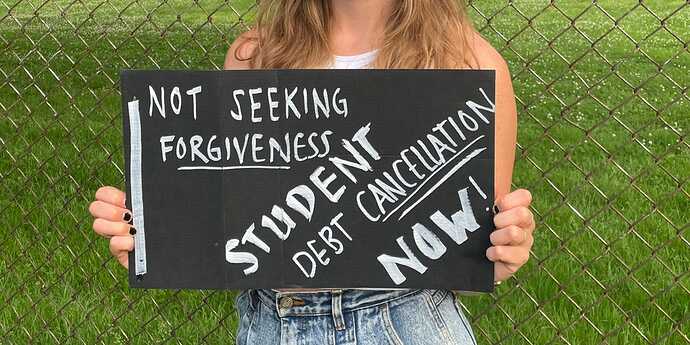 NOT SEEKING
FORGIVENESS
STUDENT
DEBT CANCELLATION
NOW!